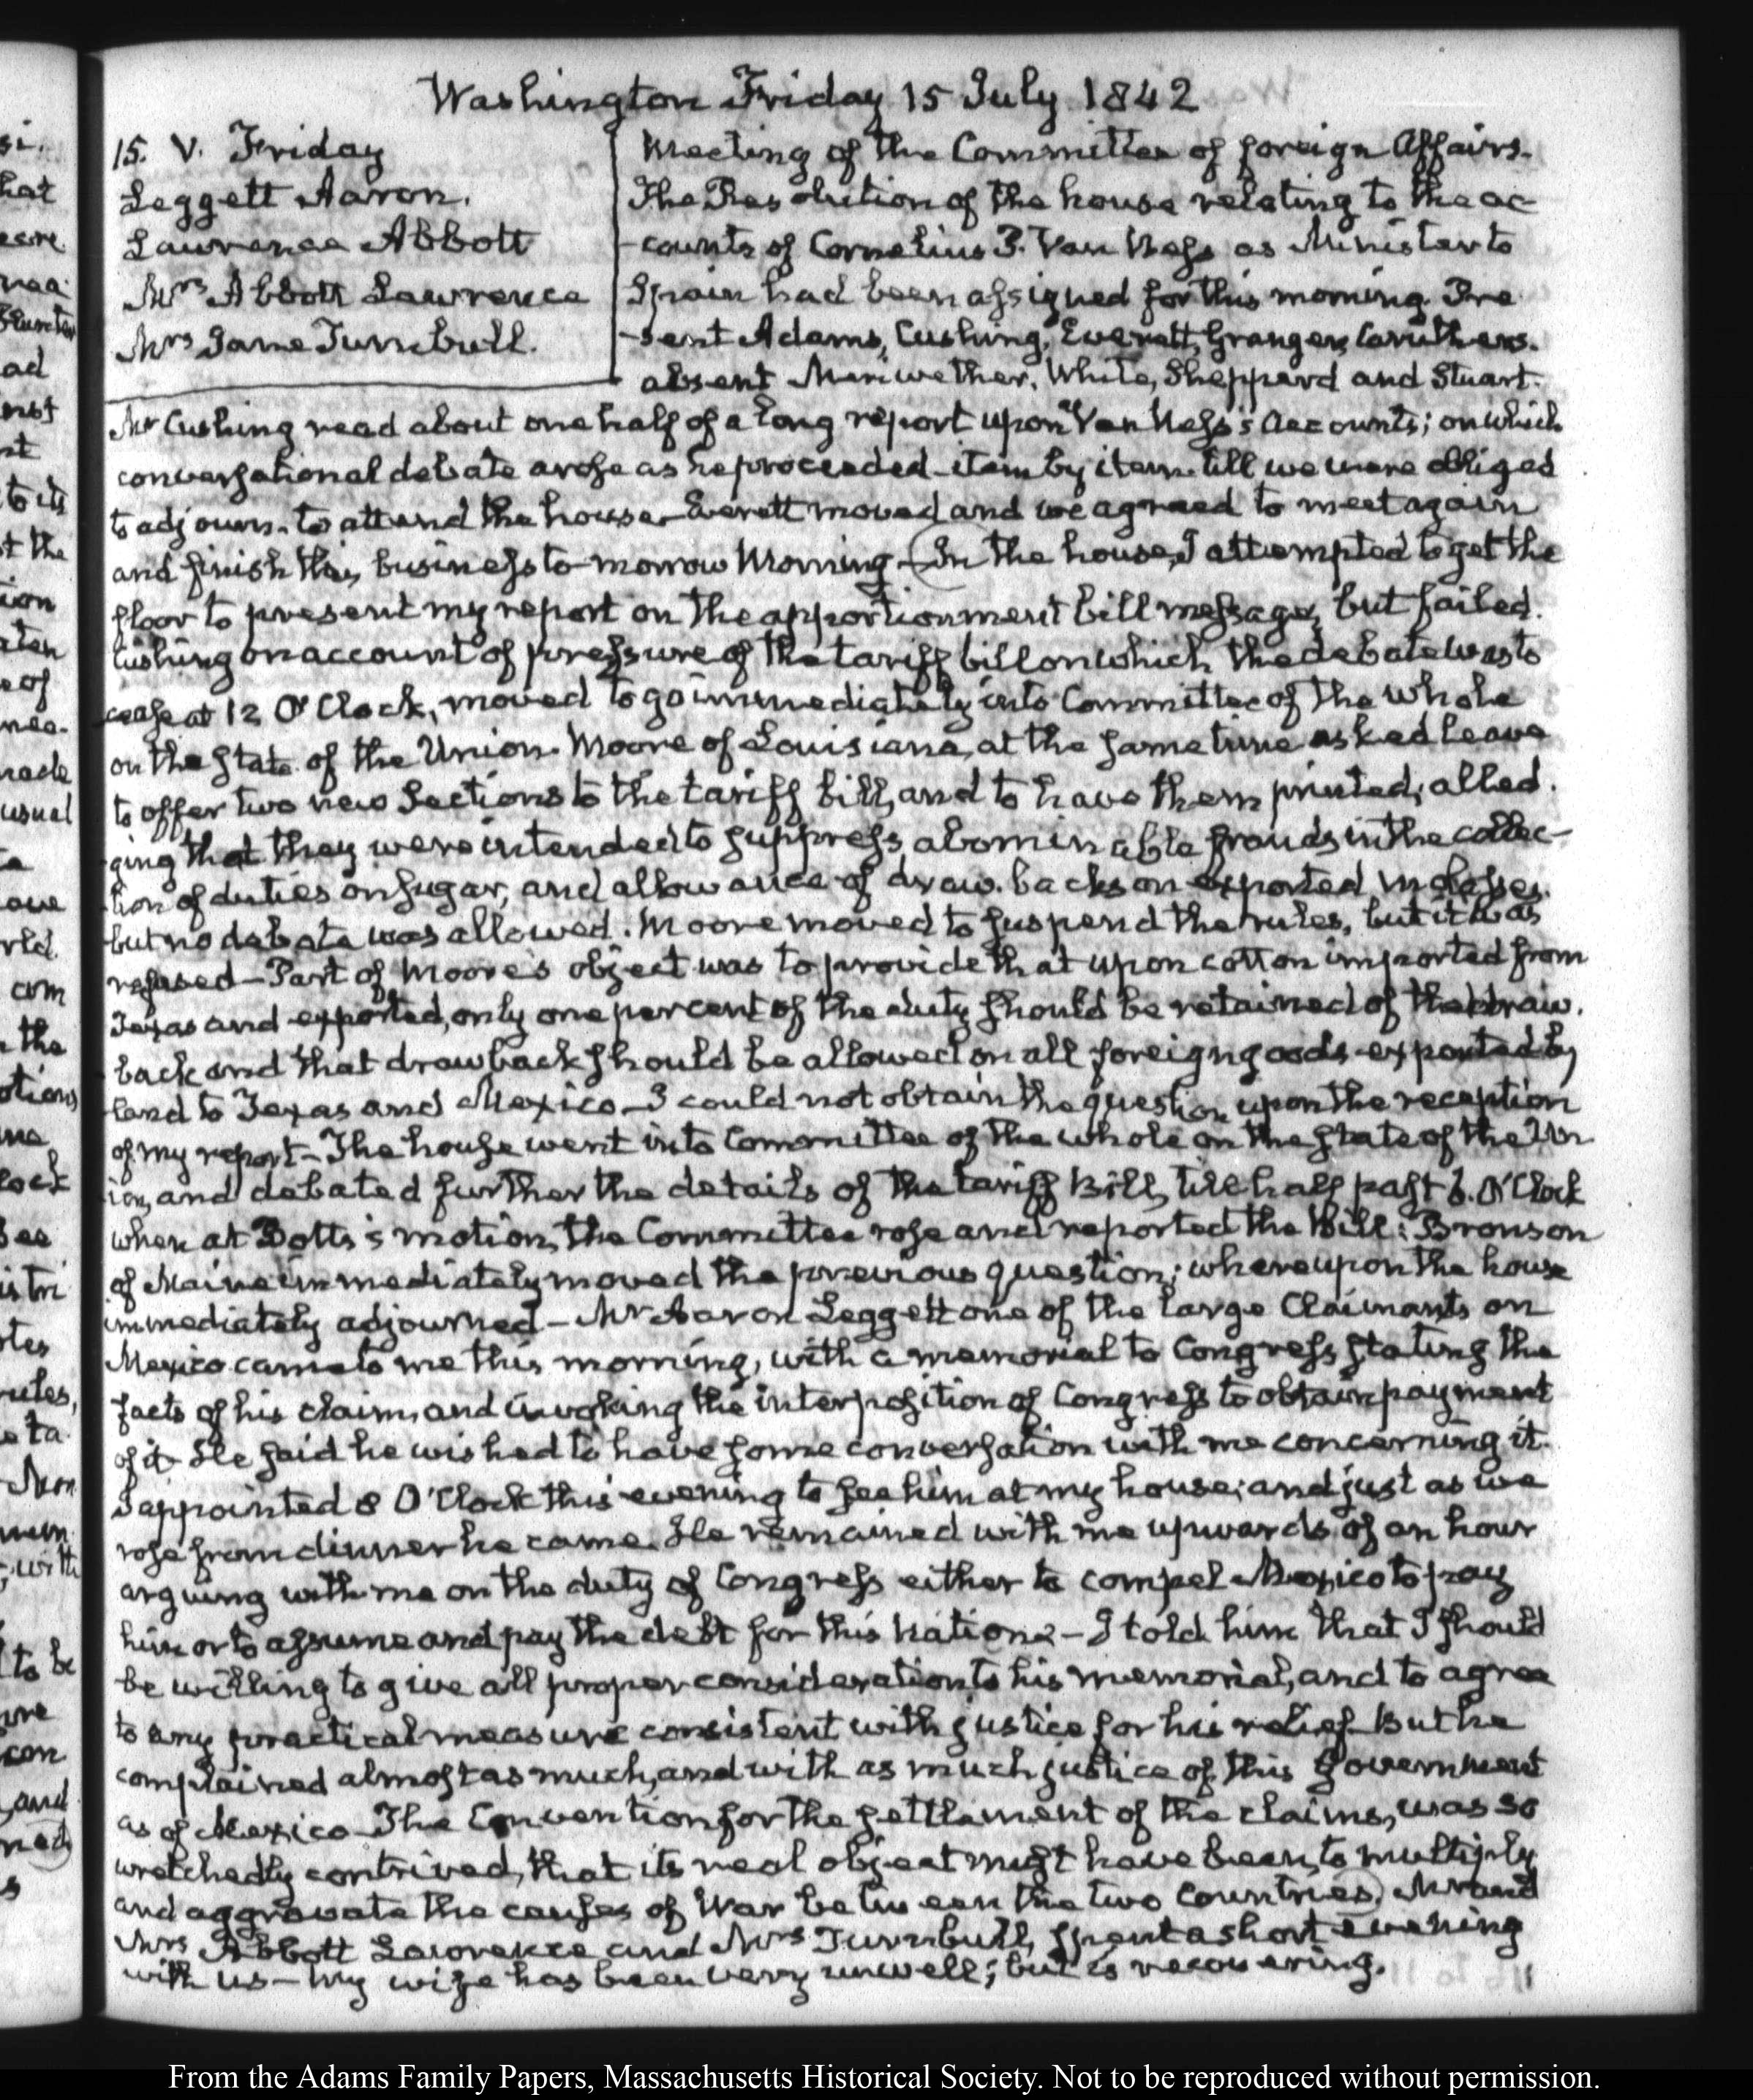 Washington Friday 15 July 1842
15. V. Friday
Leggett Aaron.
Lawrence Abbott
Mrs Abbott Lawrence
Mrs Jane Turnbull.
Meeting of the Committee of foreign Affairs.
The Resolution of the house relating to the ac
-counts of Cornelius P. Van Ness as Minister to
Spain had been assigned for this morning. Pre
-sent Adams, Cushing, Everett, Granger, Caruthers.
absent Meriwether, White, Sheppard and Stuart.
Mr Cushing read about one half of a long report upon Van Ness's accounts; on which
conversational debate arose as he proceeded item by item till we were obliged
to adjourn to attend the house. Everett moved and we agreed to meet again
and finish this business to-morrow Morning. In the house, I attempted to get the
floor to present my report on the apportionment bill message, but failed.
Cushing on account of pressure of the tariff bill on which the debate was to
cease at 12 O'Clock, moved to go immediately into Committee of the whole
on the state of the Union. Moore of Louisiana, at the same time asked leave
to offer two new Sections to the tariff bill, and to have them printed, alled.
ging that they were intended to suppress abominable frauds in the collec-
tion of duties on sugar, and allowance of draw.backs on exported molasses.
but no debate was allowed. Moore moved to suspend the rules, but it was
refused – Part of Moore's object was to provide that upon cotton imported from
Texas and exported, only one per cent of the duty should be retained of the draw.
back and that drawback should be allowed on all foreign goods exported by
land to Texas and Mexico – I could not obtain the question upon the reception
of my report – The house went into Committee of the whole on the state of the Un
ion, and debated further the details of the tariff Bill, till half past 6. O'Clock
when at Botts's motion, the Committee rose and reported the Bill: Bronson
of Maine immediately moved the previous question; whereupon the house
immediately adjourned – Mr Aaron Leggett one of the large Claimants on
Mexico came to me this morning, with a memorial to Congress stating the
facts of his claim, and invoking the interposition of Congress to obtain payment
of it. He said he wished to have some conversation with me concerning it.
I appointed 8 O'Clock this evening to see him at my house; and just as we
rose from dinner he came. He remained with me upwards of an hour
arguing with me on the duty of Congress either to compel Mexico to pay
him or to assume and pay the debt for this Nation – I told him that I should
be willing to give all proper consideration to his memorial, and to agree
to any practical measure consistent with justice for his relief. But he
complained almost as much, and with as much justice of this Government
as of Mexico – The Convention for the settlement of the claims, was so
wretchedly contrived, that its real object might have been, to multiply
and aggravate the causes of War between the two Countries. Mr and
Mrs Abbott Lawrence and Mrs Turnbull, spent a short evening
with us – my wife has been very unwell; but is recovering.
From the Adams Family Papers, Massachusetts Historical Society. Not to be reproduced without permission.